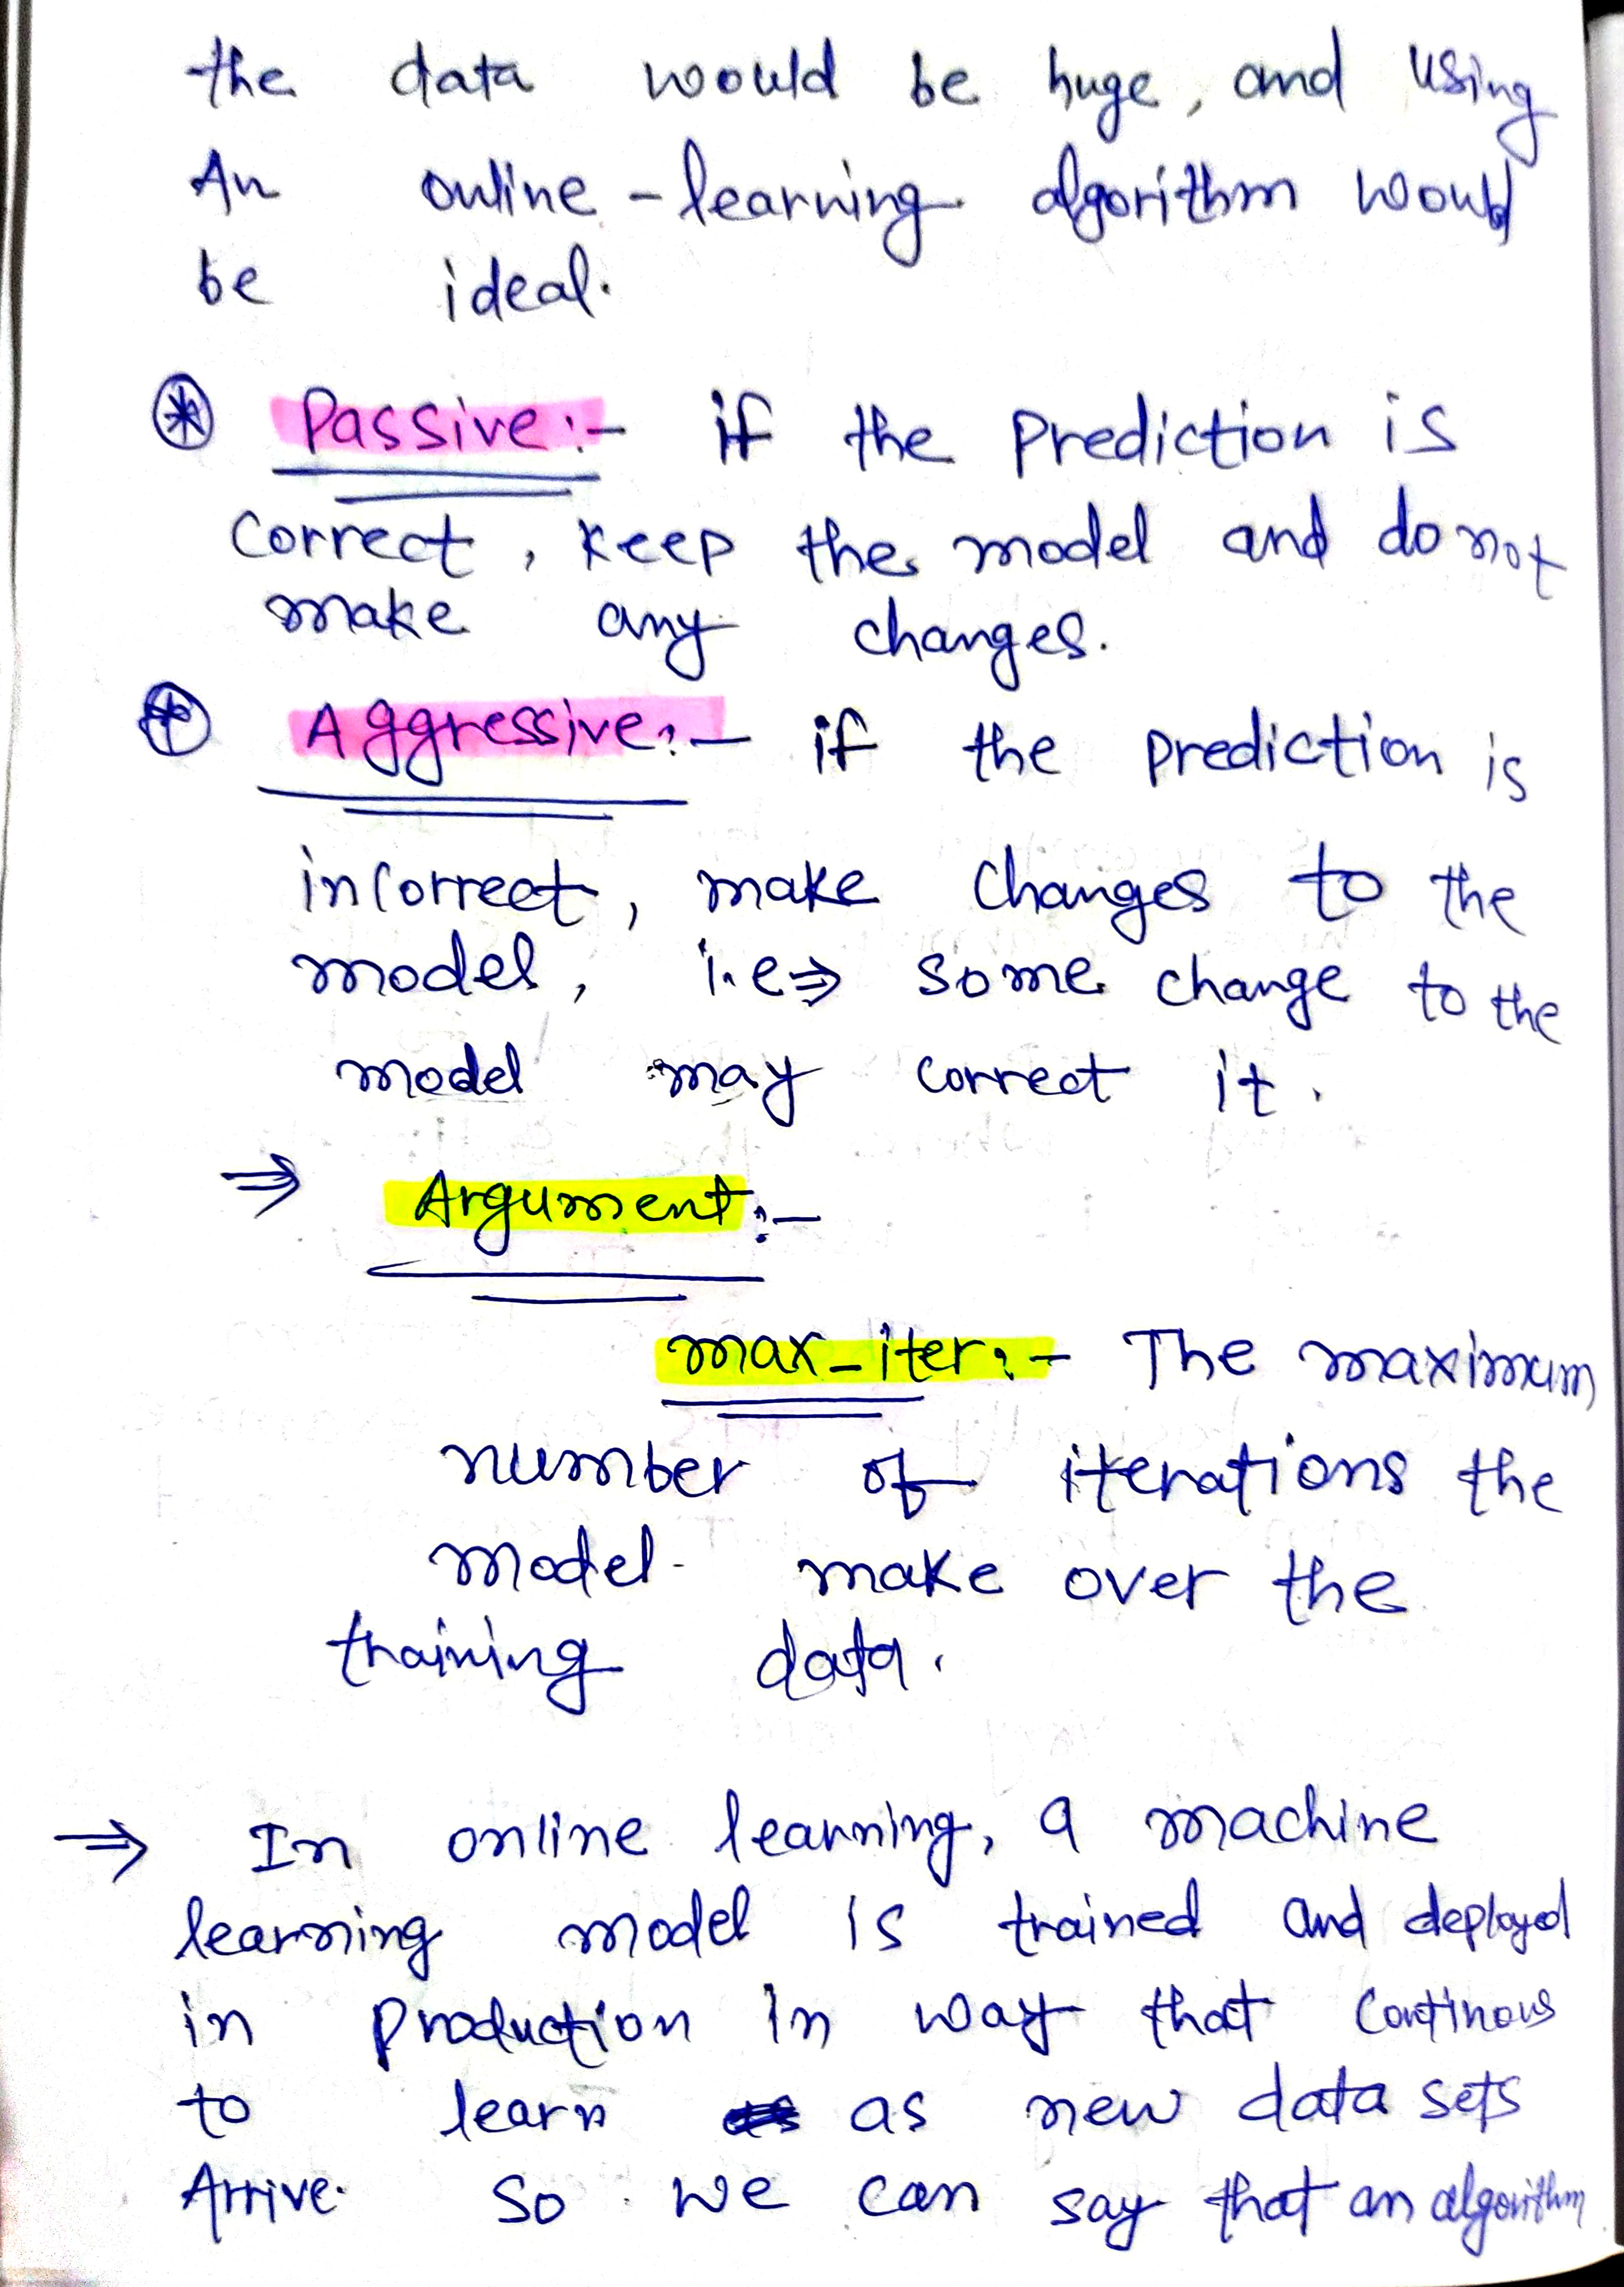 the data would be huge, and using
An online-learning algorithm would
be ideal.
Passive:- if the Prediction is
Correct, Keep the model and do not
make any changes.
Aggressive:- if the prediction is
incorrect, make changes to the
model, i.e⇒ some change to the
model may correct it.
⇒ Argument:-
max_iter:- The maximum
number of iterations the
model make over the
training data.
⇒ In online learning, a machine
learning model is trained and deployed
in production in way that continous
to learn as new data sets
Arrive. So we can say that an algorithm